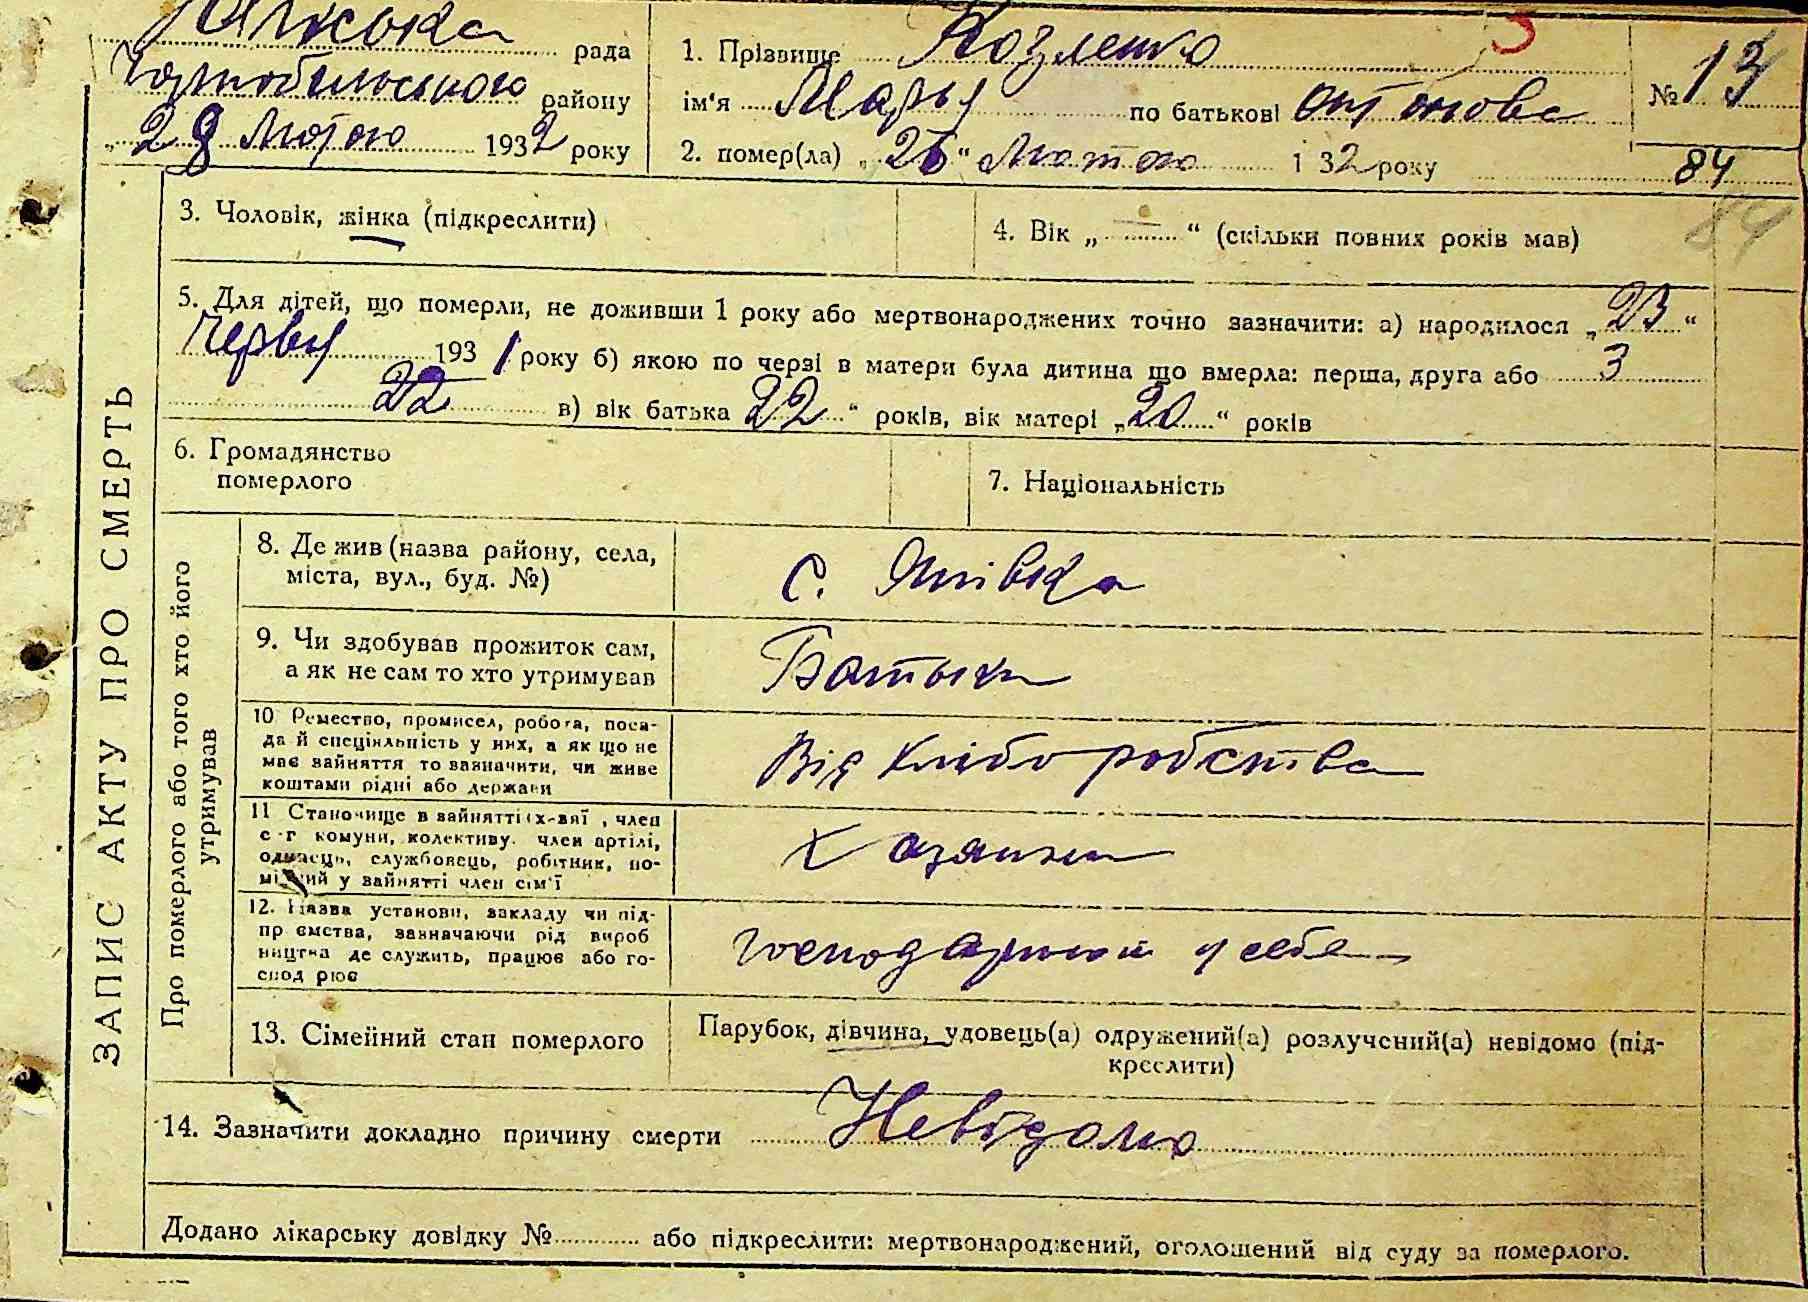 рада
1. Прізвище Козленко
№ 13
Чорнобильського району
ім'я Марья по батькові Антонова
"28 Лютого 1932 року
2. помер(ла) "26" Лютого 1 32 року
84
84
3. Чоловік, жінка (підкреслити)
4. Вік „—“ (скільки повних років мав)
5. Для дітей, що померли, не доживши 1 року або мертвонароджених точно зазначити: а) народилося „23“
Червня 1931 року б) якою по черзі в матери була дитина що вмерла: перша, друга або 3
22 в) вік батька 22“ років, вік матері „20“ років
6. Громадянство
померлого
7. Національність
ЗАПИС АКТУ ПРО СМЕРТЬ
Про померлого або того хто його
утримував
8. Де жив (назва району, села,
міста, вул., буд. №)
с.
9. Чи здобував прожиток сам,
а як не сам то хто утримував
Батьки
10 Ремество, промисел, робота, поса-
да й спеціяльність у них, а як що не
має зайняття то зазначити, чи живе
коштами рідні або держави
Від хліборобства
11 Становище в зайнятті (х-вяї , член
с-г комуни, колективу. член артілі,
одинець, службовець, робітник, по-
мічний у зайнятті член сім'ї
Хазяини
12. Назва установи, закладу чи під-
пр ємства, зазначаючи рід вироб
ництва де служить, працює або го-
спод рює
у себе
13. Сімейний стан померлого
Парубок, дівчина, удовець(а) одружений(а) розлучений(а) невідомо (під-
креслити)
14. Зазначити докладно причину смерти Невідомо
Додано лікарську довідку № або підкреслити: мертвонароджений, оголошений від суду за померлого.